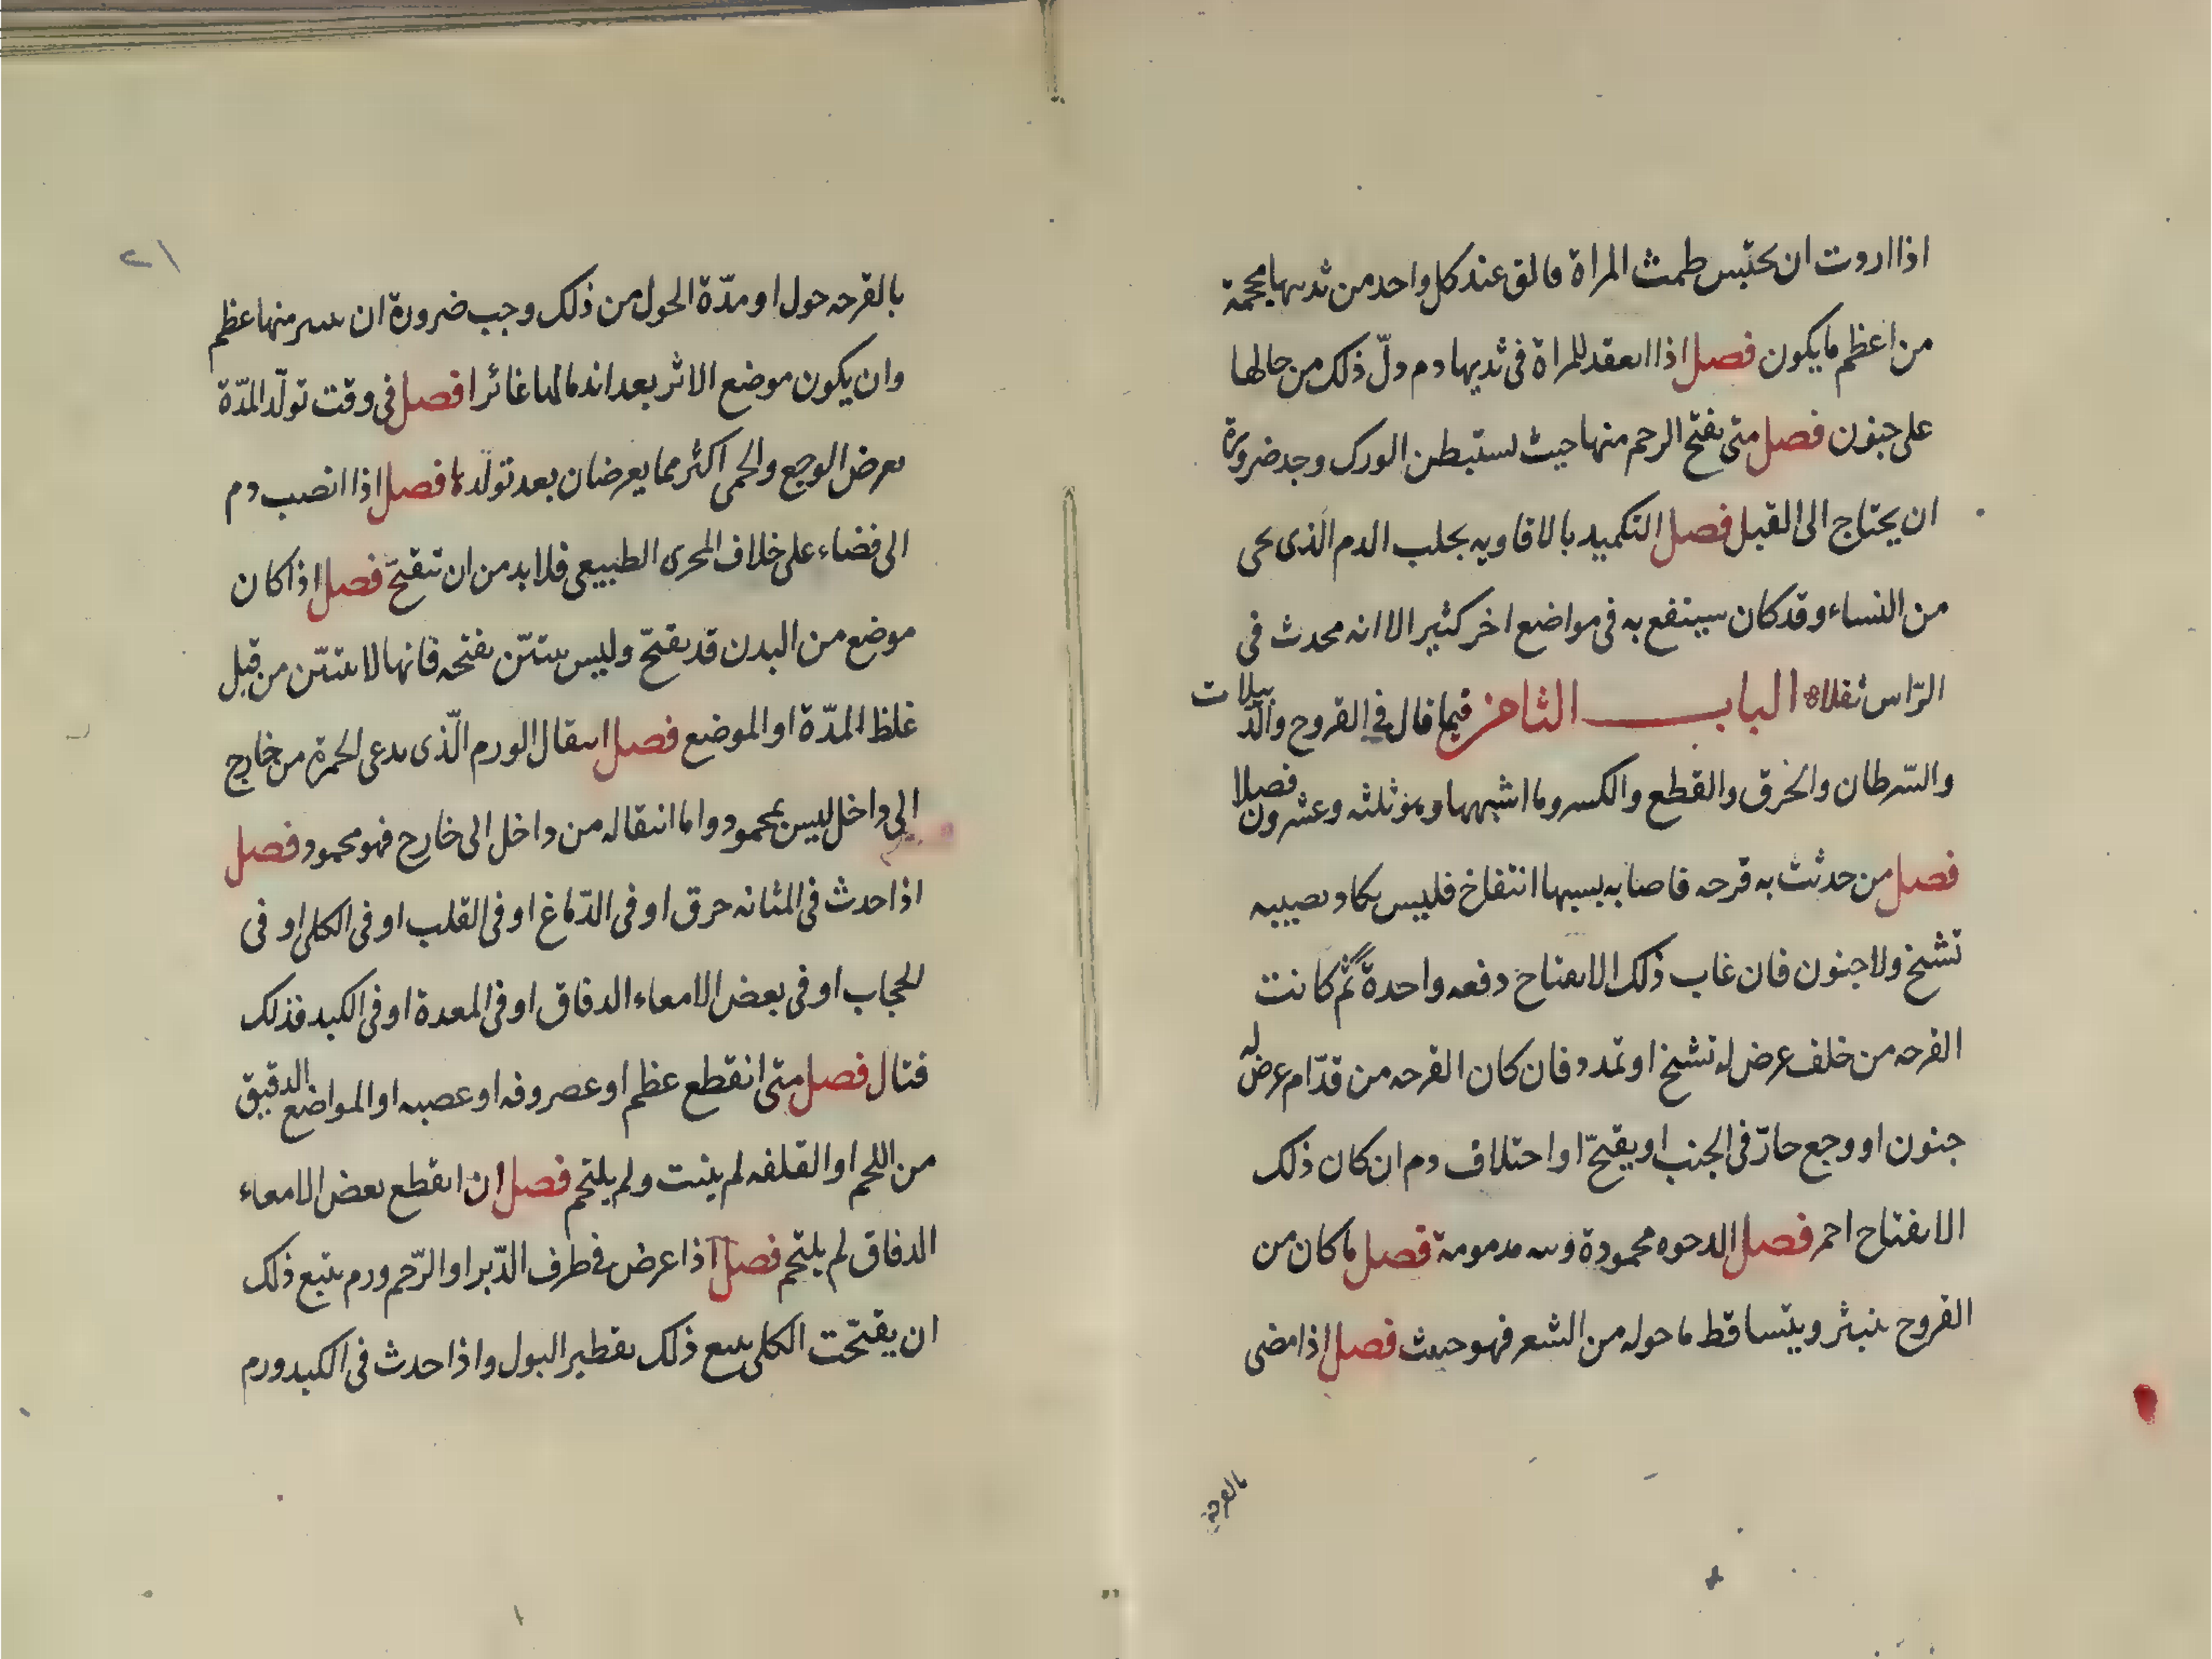 اذا اردت ان تحتبس طمث المراة فالق عند كل واحد من ثدييها محجمة
من اعظم ما يكون فصل اذا انعقد للمراة فى ثديها دم دلّ ذلك من حالها
على جنون فصل متى تفتح الرحم منها حيث يستبطن الورك وجد ضرورة
ان يحتاج الى القبل فصل التكميد بالافاويه يجلب الدم الّذى يجى
من النساء وقد كان سينتفع به فى مواضع اخر كثير الا انه يحدث فى
الرّاس ثقلا الباب الثامن فيما قال فى القروح والدبيلات
والسّرطان والخرق والقطع والكسر وما اشبهها وهو ثلثه وعشرون فصلا
فصل من حدثت به قرحه فاصابه بسببها انتفاخ فليس يكاد يصيبه
تشنخ ولا جنون فان غاب ذلك الانفتاح دفعه واحدة ثم كانت
القرحه من خلف عرض له تشنخ او تمدد فان كان القرحه من قدّام عرض له
جنون او وجع حارّ فى الجنب او يقيّح او احتلاف دم ان كان ذلك
الانفتاح احمر فصل الدحوه محمودة مدمومة فصل ما كان من
القروح ينبثر ويتساقط ما حوله من الشعر فهو حبيث فصل اذا مضى
بالقرحة
٢١
بالقرحه حول او مدّة الحول من ذلك وجب ضرورة ان منها عظم
وان يكون موضع الاثر بعد اندمالها غائرا فصل فى وقت تولّد المدّة
يعرض الوجع والحمى اكثر مما يعرضان بعد تولّدها فصل اذا انصب دم
الى فضاء على خلاف المجرى الطبيعى فلابد من ان تتقيّح فصل اذا كان
موضع من البدن قد تقيّح وليس يتبيّن تقيحه فانها لا يتبيّن من قبل
غلظ المدّة او الموضع فصل انتقال الورم الّذى يدعى الحمرة من خارج
الى داخل ليس بمحمود واما انتقاله من داخل الى خارج فهو محمود فصل
اذا حدث فى المثانه حرق او فى الدّماغ او فى القلب او فى الكلى او فى
الحجاب او فى بعض الامعاء الدقاق او فى المعدة او فى الكبد فذلك
قتال فصل متى انقطع عظم او عصروفه او عصبه او المواضع الدقيق
من اللحم او القلفه لم ينبت ولم يلتحم فصل ان انقطع بعض الامعاء
الدقاق لم يلتحم فصل اذا عرض فى طرف الدّبر او الرّحم ورم يتبع ذلك
ان يقيّحت الكلى تتبع ذلك تقطير البول واذا حدث فى الكبد ورم